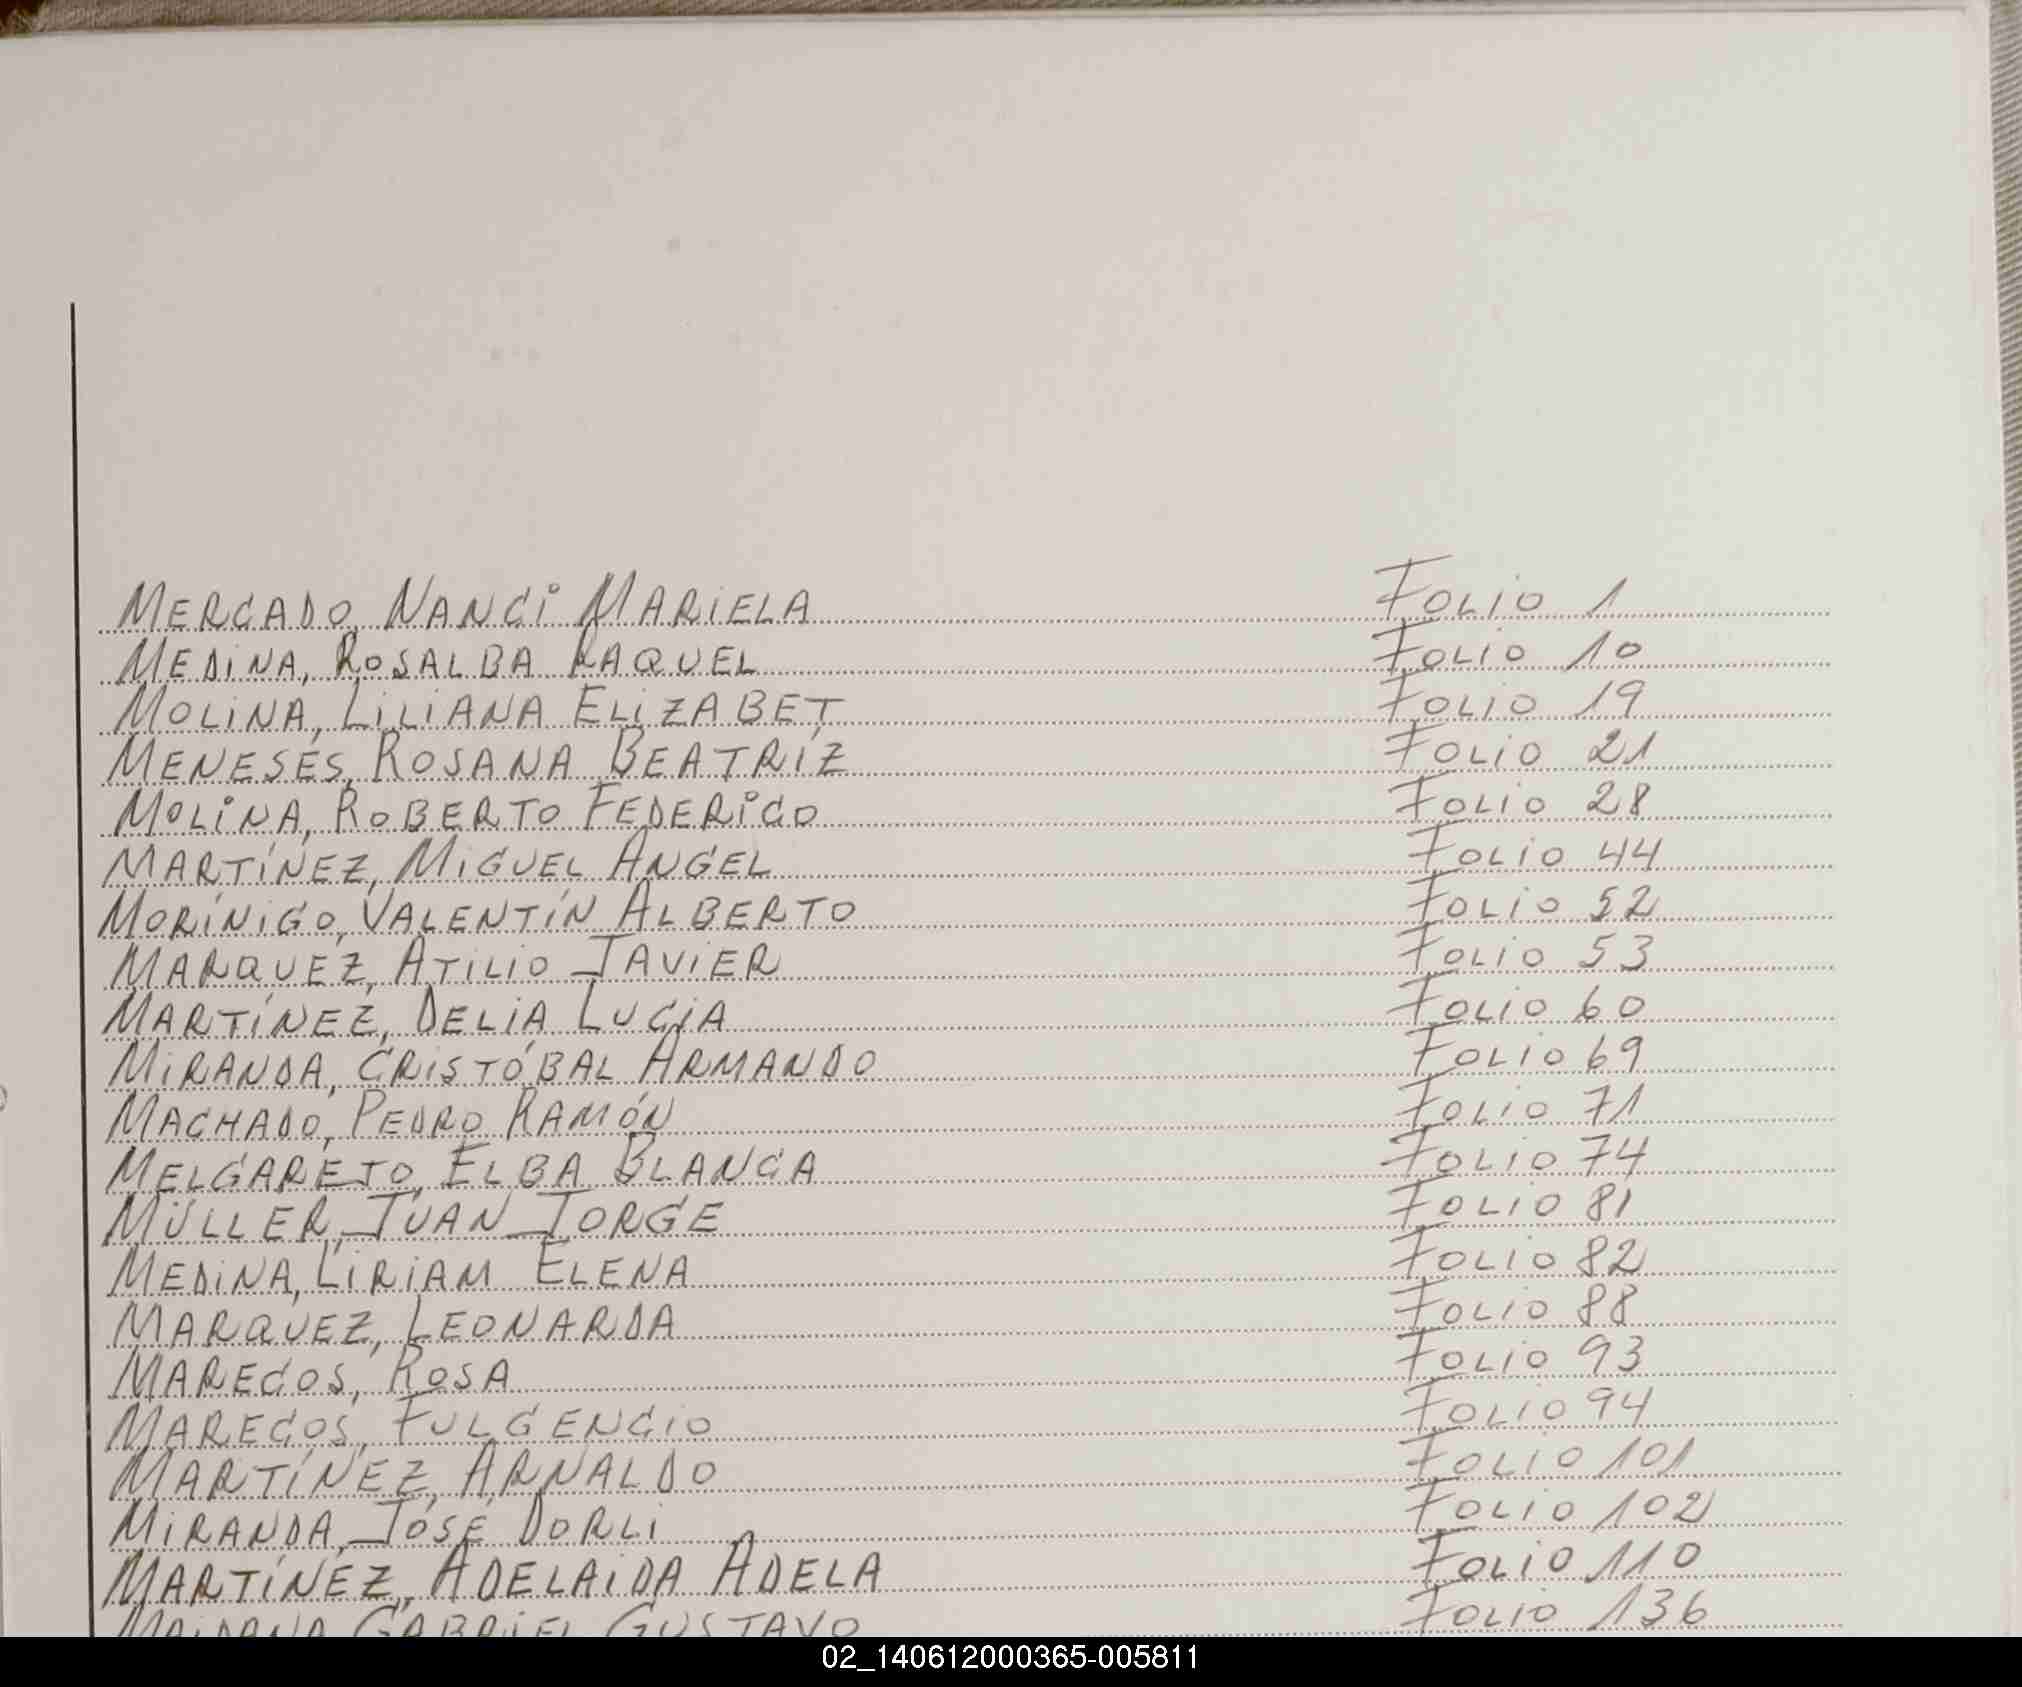 MERCADO, NANCI MARIELA FOLIO 1
MEDINA, ROSALBA RAQUEL FOLIO 10
MOLINA, LILIANA ELIZABET FOLIO 19
MENESES, ROSANA BEATRÍZ FOLIO 21
MOLINA, ROBERTO FEDERICO FOLIO 28
MARTÍNEZ, MIGUEL ANGEL FOLIO 44
MORÍNIGO, VALENTÍN ALBERTO FOLIO 52
MARQUEZ, ATILIO JAVIER FOLIO 53
MARTÍNEZ, DELIA LUCIA FOLIO 60
MIRANDA, CRISTÓBAL ARMANDO FOLIO 69
MACHADO, PEDRO RAMÓN FOLIO 71
MELGAREJO, ELBA BLANCA FOLIO 74
MÜLLER, JUAN JORGE FOLIO 81
MEDINA, LIRIAM ELENA FOLIO 82
MARQUEZ, LEONARDA FOLIO 88
MARECOS, ROSA FOLIO 93
MARECOS, FULGENCIO FOLIO 94
MARTÍNEZ, ARNALDO FOLIO 101
MIRANDA, JOSÉ DORLI FOLIO 102
MARTÍNEZ, ADELAIDA ADELA FOLIO 110
MAIDANA GABRIEL GUSTAVO FOLIO 136
02_140612000365-005811